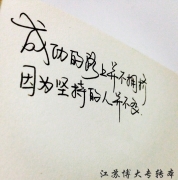 成功的路上并不拥挤
因为坚持的人并不多.
江苏博大专转本